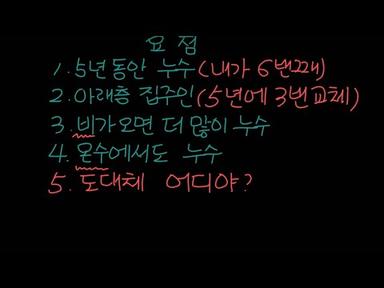 요점
1. 5년동안 누수 (내가 6번째)
2. 아래층 집주인 (5년에 3번교체)
3. 비가오면 더 많이 누수
4. 온수에서도 누수
5. 도대체 어디야?